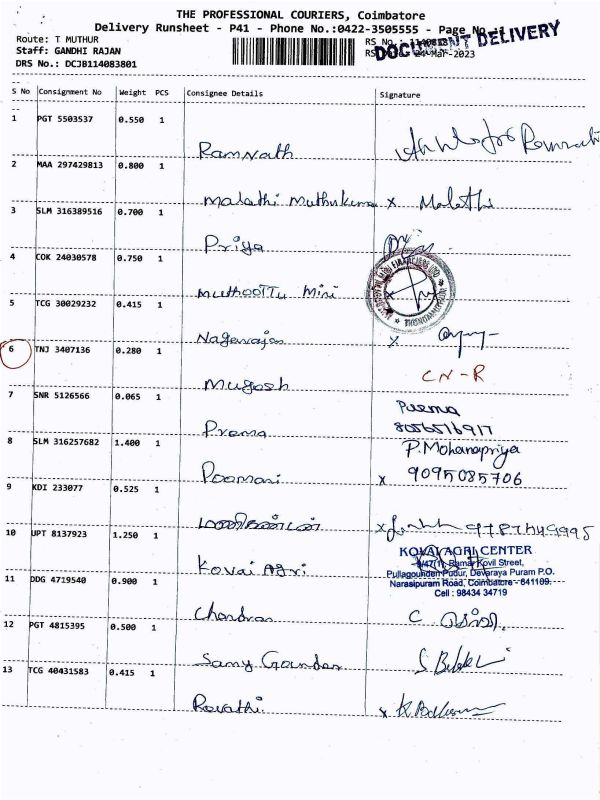 THE PROFESSIONAL COURIERS, Coimbatore
Delivery Runsheet - P41 - Phone No.:0422-3505555 - Page No
DOCUMENT DELIVERY
Route: T MUTHUR
Staff: GANDHI RAJAN
DRS No.: DCJB114083801
RS No
24-Mar-2023
S No Consignment No Weight PCS Consignee Details Signature
1 PGT 5503537 0.550 1
Ramnath
2 MAA 297429813 0.800 1
Malathi Muthukumar x Malathi
3 SLM 316389516 0.700 1
Priya
4 COK 24030578 0.750 1
Muthoottu Mini x
5 TCG 30029232 0.415 1
Nagarajan x
6 TNJ 3407136 0.280 1
Mugosh CN-R
7 SNR 5126566 0.065 1
Prema
Prema 8056516917
8 SLM 316257682 1.400 1
P.Mohanapriya
Poomani x 9095085706
9 KDI 233077 0.525 1
மணிகண்டன் x
10 UPT 8137923 1.250 1
Kovai Agri
KOVAI AGRI CENTER
Ramar Kovil Street,
Pullagounden Pudur, Devaraya Puram P.O.
Narasipuram Road, Coimbatore - 641109.
Cell : 98434 34719
11 DDG 4719540 0.900 1
Chandran C
12 PGT 4815395 0.500 1
Samy Gounder
13 TCG 40431583 0.415 1
Revathi x